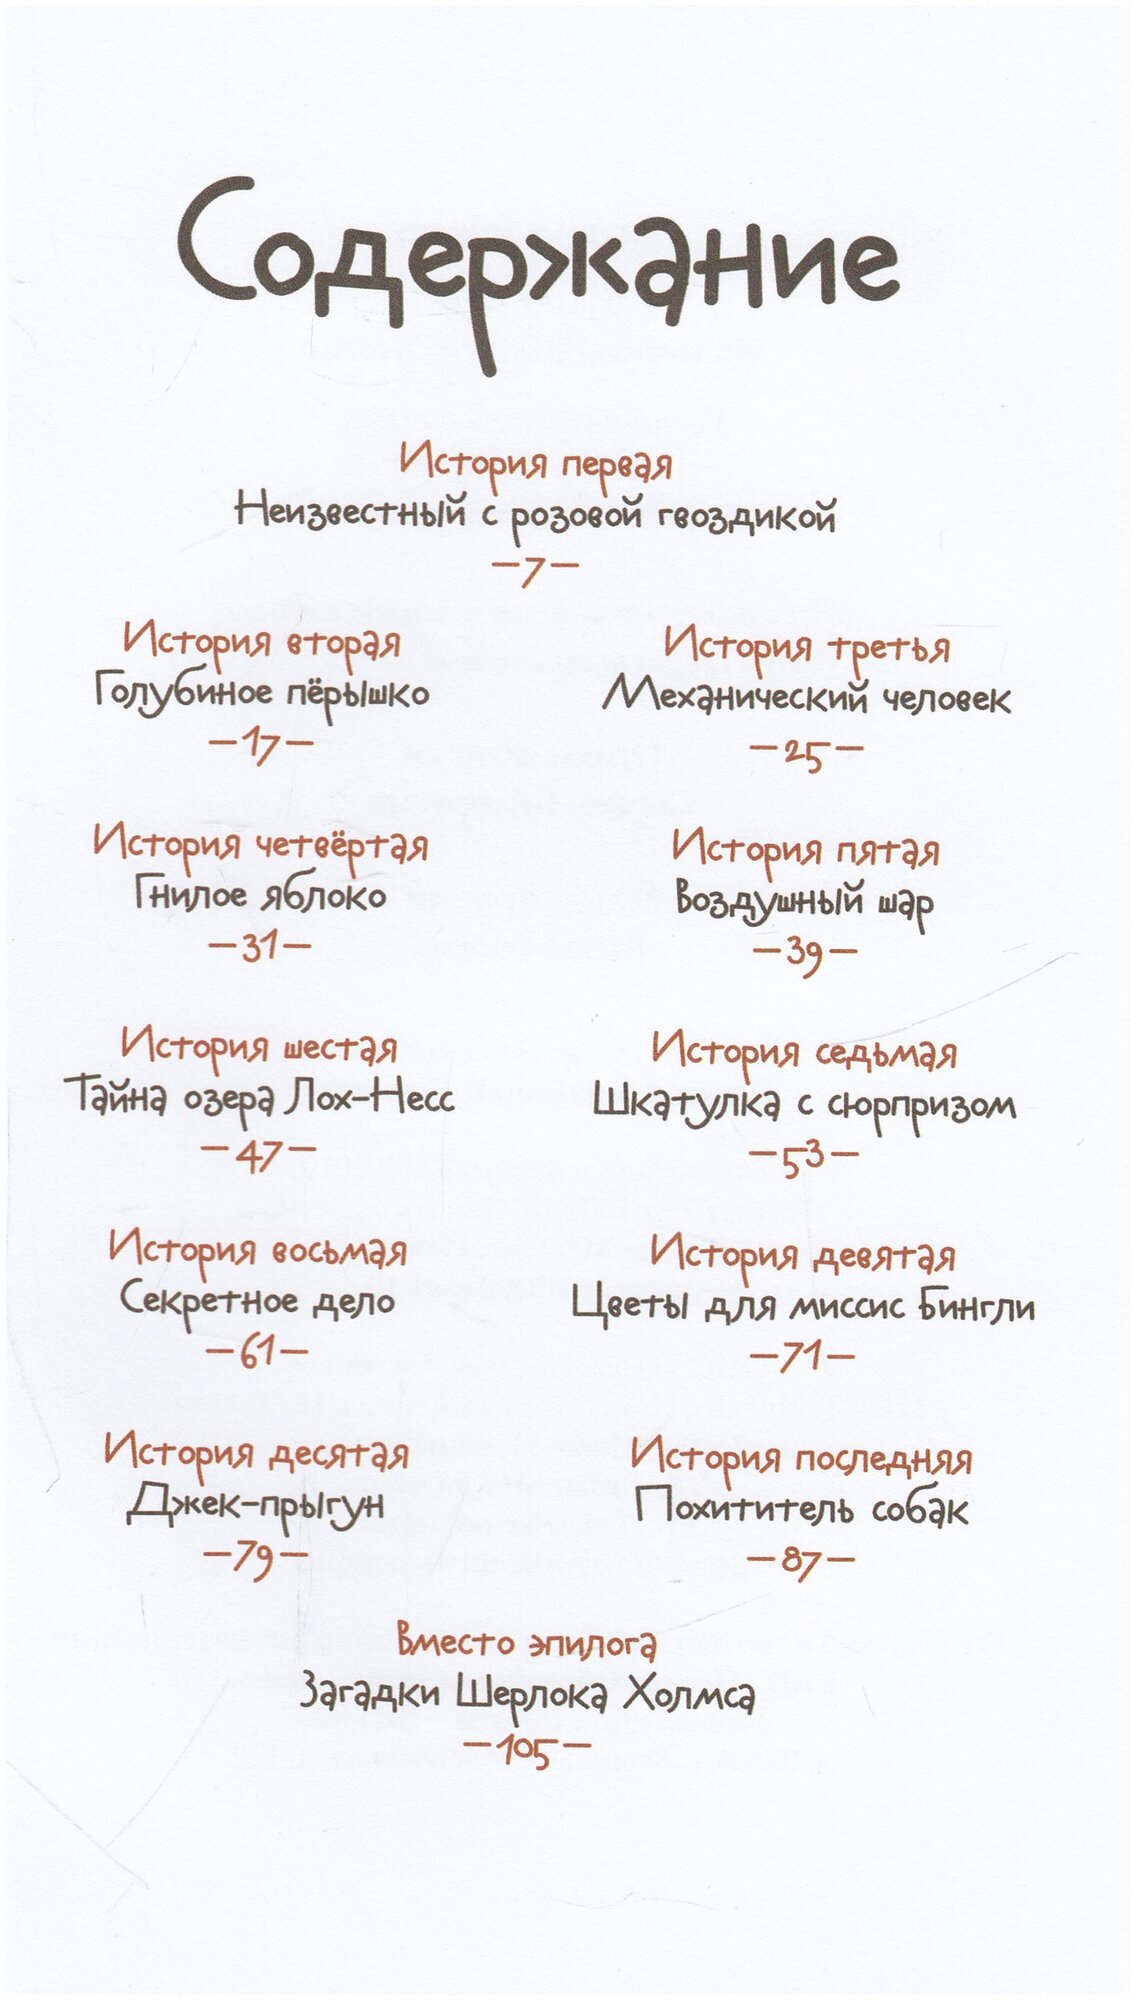 Содержание
История первая
Неизвестный с розовой гвоздикой
–7–
История вторая
Голубиное пёрышко
–17–
История третья
Механический человек
–25–
История четвёртая
Гнилое яблоко
–31–
История пятая
Воздушный шар
–39–
История шестая
Тайна озера Лох-Несс
–47–
История седьмая
Шкатулка с сюрпризом
–53–
История восьмая
Секретное дело
–61–
История девятая
Цветы для миссис Бингли
–71–
История десятая
Джек-прыгун
–79–
История последняя
Похититель собак
–87–
Вместо эпилога
Загадки Шерлока Холмса
–105–